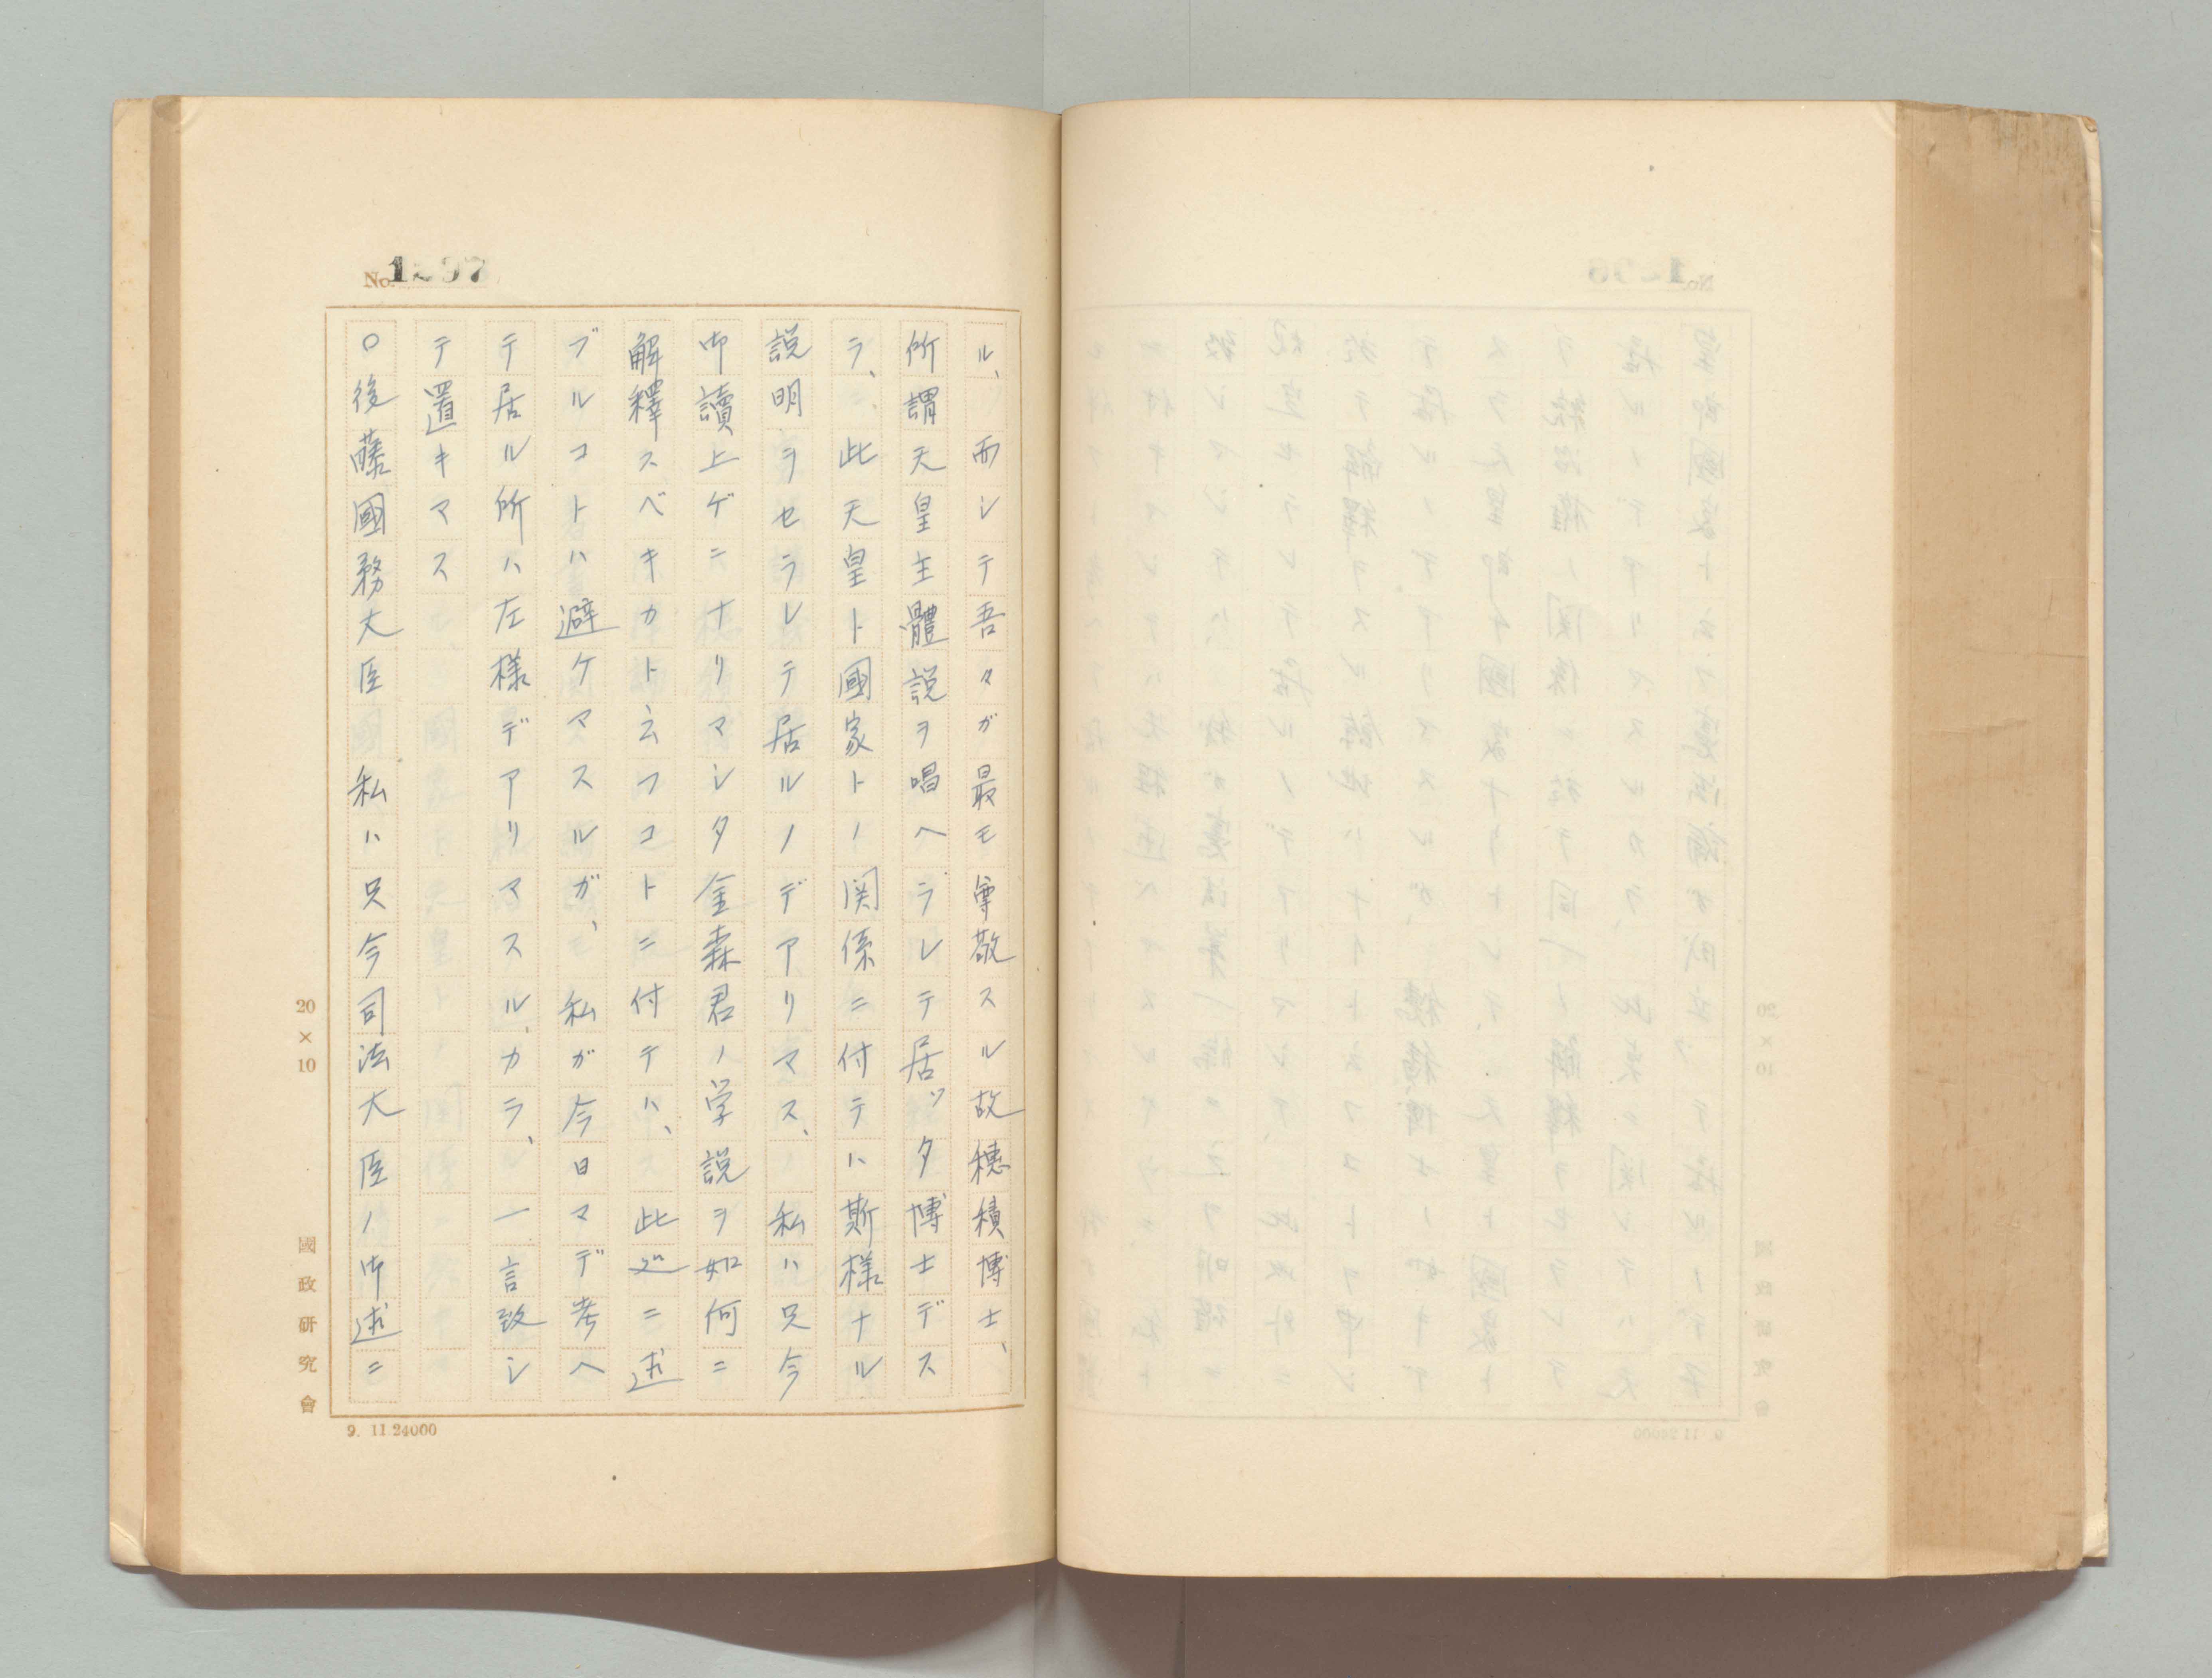 No. 1297
ル、而シテ吾々ガ最モ尊敬スル故穂積博士、
所謂天皇主體説ヲ唱ヘラレテ居ッタ博士デス
ラ、此天皇ト國家トノ関係ニ付テハ斯様ナル
説明ヲセラレテ居ルノデアリマス、私ハ只今
御讀上ゲニナリマシタ金森君ノ学説ヲ如何ニ
解釋スベキカト云フコトニ付テハ、此処ニ述
ブルコトハ避ケマスルガ、私ガ今日マデ考ヘ
テ居ル所ハ左様デアリマスルカラ、一言致シ
テ置キマス
○後藤國務大臣 私ハ只今司法大臣ノ御述ニ
20×10
國政研究會
9. 11 24000